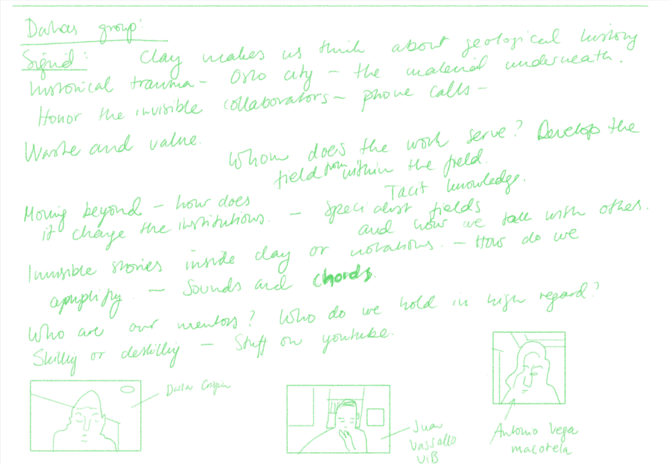 group:
Sigrid: Clay makes us think about geological history
Historical trauma – Oslo city – the material underneath.
Honor the invisible collaborators – phone calls –
Waste and value.
Whom does the work serve? Develop the
field from within the field.
Tacit knowledge.
Moving beyond – how does
it change the institutions. – Specialist fields
and how we talk with other.
Invisible stories inside clay or notations. – How do we
amplify – Sounds and chords
Who are our mentors? Who do we hold in high regard?
Skilling or deskilling – Stuff on youtube.
Juan
Vassallo
UiB
Antonio Vega
macotela